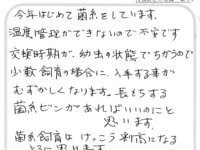 今年はじめて菌糸をしています。
温度管理ができないので不安です
交換時期が、幼虫の状態でちがうので
少数飼育の場合に、入手する事が
むずかしくなります。長もちする
菌糸ビンがあればいいのにと
思います。
菌糸飼育は、けっこう判断になる
ように思います